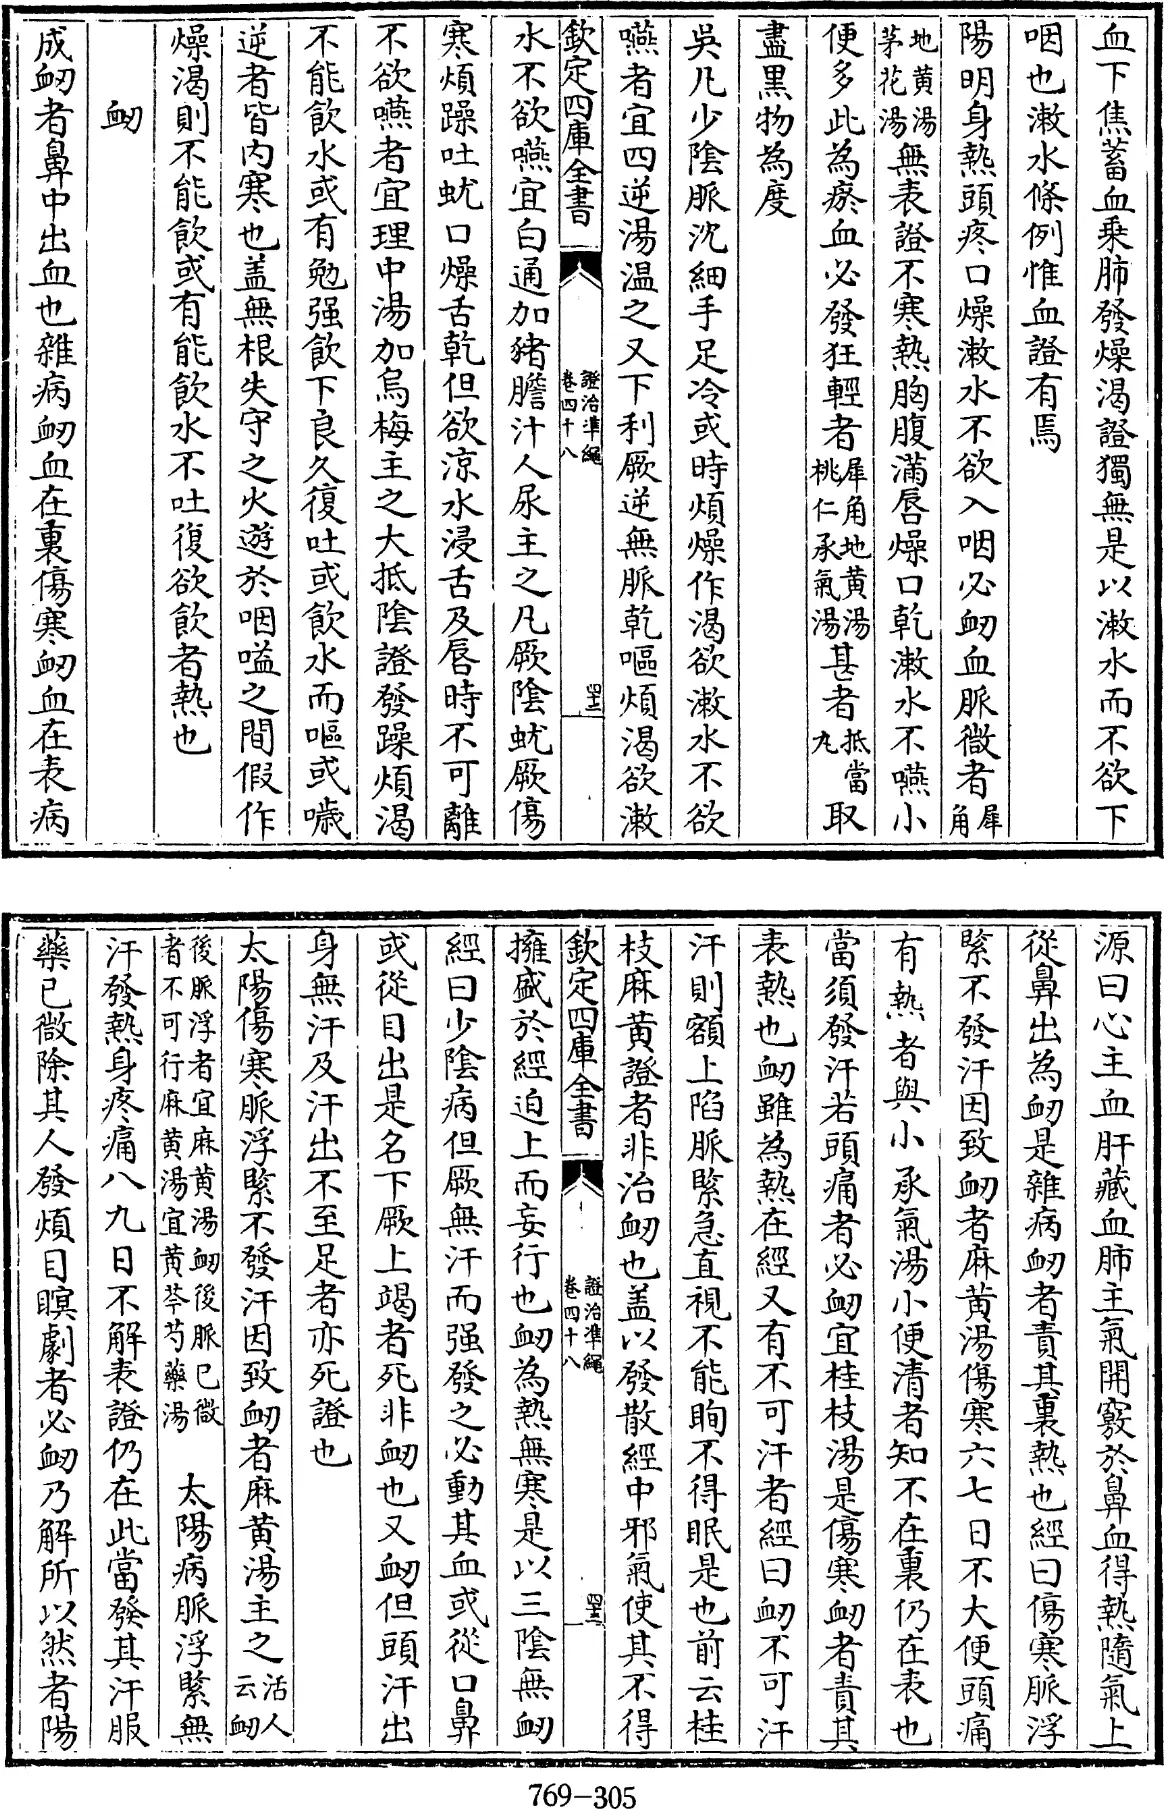 血下焦蓄血乗肺發燥渴證獨無是以漱水而不欲下
咽也漱水條例惟血證有焉
陽明身熱頭疼口燥漱水不欲入咽必衂血脈微者犀角
地黄湯茅花湯無表證不寒熱胸腹滿唇燥口乾漱水不嚥小
便多此為瘀血必發狂輕者犀角地黄湯桃仁承氣湯甚者抵當丸取
盡黒物為度
吳凡少陰脈沈細手足冷或時煩燥作渴欲漱水不欲
嚥者宜四逆湯温之又下利厥逆無脈乾嘔煩渴欲漱
欽定四庫全書 證治準繩卷四十八
水不欲嚥宜白通加豬膽汁人尿主之凡厥陰蚘厥傷
寒煩躁吐蚘口燥舌乾但欲涼水浸舌及唇時不可離
不欲嚥者宜理中湯加烏梅主之大抵陰證發躁煩渴
不能飲水或有勉强飲下良久復吐或飲水而嘔或噦
逆者皆内寒也盖無根失守之火遊於咽嗌之間假作
燥渴則不能飲或有能飲水不吐復欲飲者熱也
衂
成衂者鼻中出血也雜病衂血在裏傷寒衂血在表病
源曰心主血肝藏血肺主氣開竅於鼻血得熱隨氣上
從鼻出為衂是雜病衂者責其裏熱也經曰傷寒脈浮
緊不發汗因致衂者麻黄湯傷寒六七日不大便頭痛
有熱者與小承氣湯小便清者知不在裏仍在表也
當須發汗若頭痛者必衂宜桂枝湯是傷寒衂者責其
表熱也衂雖為熱在經又有不可汗者經曰衂不可汗
汗則額上陷脈緊急直視不能眴不得眠是也前云桂
枝麻黄證者非治衂也盖以發散經中邪氣使其不得
欽定四庫全書 證治準繩卷四十八
擁盛於經迫上而妄行也衂為熱無寒是以三陰無衂
經曰少陰病但厥無汗而强發之必動其血或從口鼻
或從目出是名下厥上竭者死非衂也又衂但頭汗出
身無汗及汗出不至足者亦死證也
太陽傷寒脈浮緊不發汗因致衂者麻黄湯主之活人云衂
後脈浮者宜麻黄湯衂後脈已微者不可行麻黄湯宜黄芩芍藥湯 太陽病脈浮緊無
汗發熱身疼痛八九日不解表證仍在此當發其汗服
藥已微除其人發煩目瞑劇者必衂乃解所以然者陽
769-305